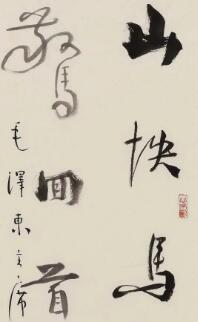 山快馬
驚回首
毛澤東主席